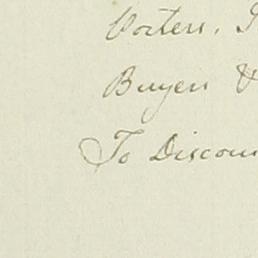 Porters, I
Buyers &
To Discoun